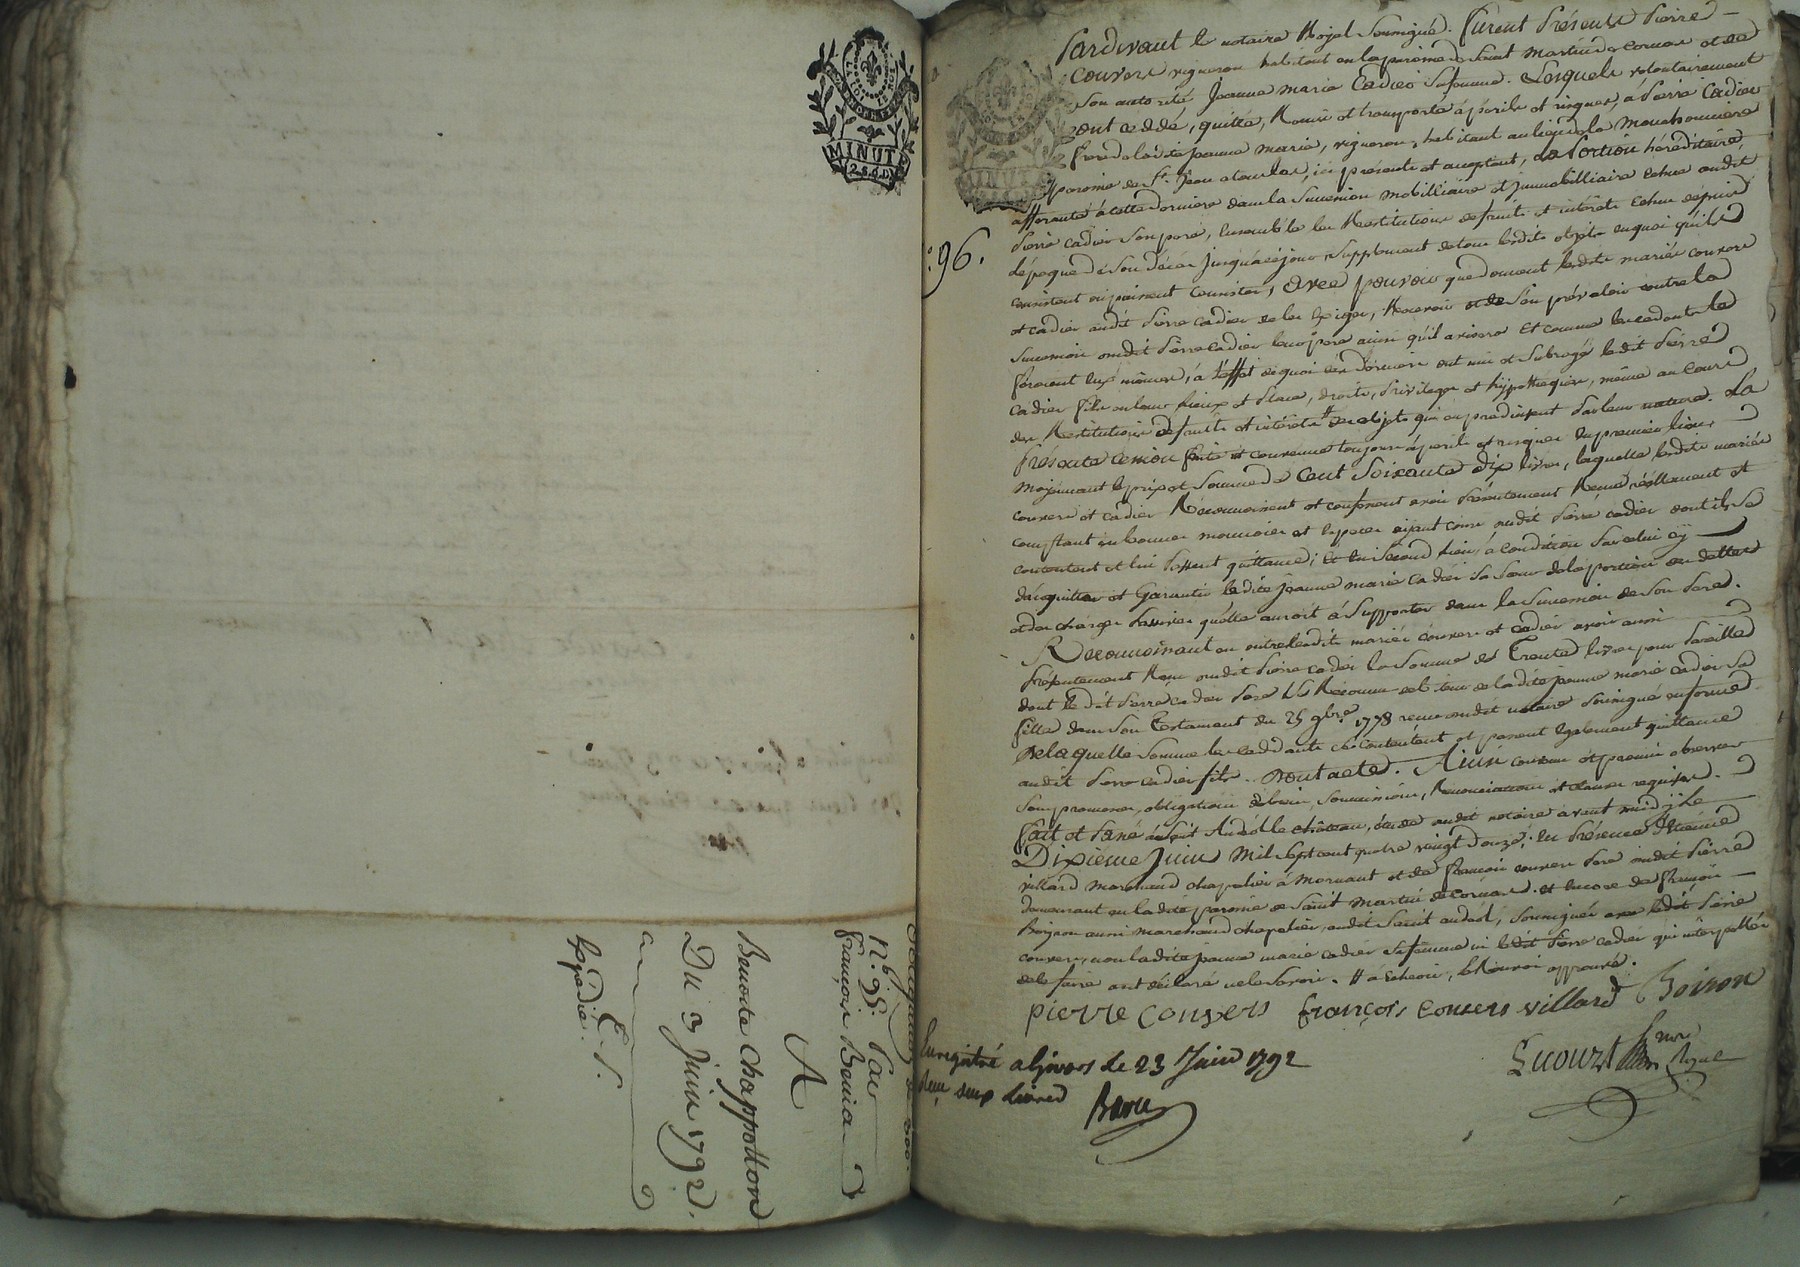 MINUTE
2. S. 6. D.
n.º 95. Par
François Benier
A
Benoite Chappotton
Du 3 Juin 1792.
Expédié.
E. S.
96.
Pardevant le notaire Royal Soussigné. furent Présents Pierre
Couvers vigneron habitant en la paroisse de Saint Martin de Cornas et de
Son autorité Jeanne Marie Cadier Sa femme. Lesquels volontairement
ont ceddé, quitté, Remis et transporté à périls et risques, à Pierre Cadier
frere de ladite Jeanne Marie, vigneron, habitant au lieu de la Mouchonniere
paroisse de St. Jean a toulas, ici présent et acceptant, La Portion héréditaire,
afferante à cette derniere dans la Succession mobilliaire et jmmobilliaire Echue dudit
Pierre Cadier Son pere, Ensemble les Restitutions de fruits et intérêts Echus depuis
l'époque de Son décès jusqu'à ce jour, Supplement de tous lesdits objets en quoi qu'ils
consistent ou puissent consister, avec pouvoir que donnent lesdits mariés Couvers
et Cadier audit Pierre Cadier de les Exiger, Recevoir et de S'en prévaloir contre la
Succession dudit Pierre Cadier leur pere ainsi qu'il avisera Et comme les cedants le
feroient Eux mêmes, à l'effet de quoi ces derniers ont mis et Subrogé ledit Pierre
Cadier fils en leur lieux et Place, droits, Privileges et hypotheques, même au Cours
des Restitutions de fruits et intérêts # des objets qui en produisent Par leur nature. La
Présente cession faite et convenue toujours à perils et risques En premier lieu,
Moyennant le prix et Somme de Cent Soixante dix livres, laquelle lesdits mariés
Couvers et Cadier Reconnoissent et confessent avoir Présentement Reçue réellement et
comptant en bonnes monnoies et Especes ayant cours dudit Pierre Cadier dont ils Se
contentent et lui Passent quittance; Et En Second lieu, à condition Par celui cy
d'acquitter et Garantir ladite Jeanne Marie Cadier Sa Soeur de la portion des dettes
et des charges Passives qu'elle auroit à Supporter dans la Succession de Son Pere.
Reconnoissant en outre lesdits mariés Couvers et Cadier avoir aussi
Présentement Reçu dudit Pierre Cadier la Somme de Trente livres pour Pareille
dont ledit Pierre Cadier Pere S'est Reconnu debiteur de ladite Jeanne Marie Cadier Sa
fille dans Son Testament du 25 9bre. 1778 reçu dudit notaire Soussigné en forme
De laquelle Somme les cedants Se contentent et passent Egalement quittance
audit Pierre Cadier fils. Dont acte. Ainsi convenu et promis observer
Sous promesses, obligations de biens, Soumissions, Renonciations et clauses requises.
Fait et Passé à Saint Andéol le château, étude dudit notaire avant midy Le
Dixieme Juin Mil Sept cent quatre vingt douze; En Présence d'Etienne
villard Marchand chapelier à Mornant et de françois Couvers Pere dudit Pierre
demeurant en ladite paroisse de Saint Martin de Cornas. et Encore de françois
Boiron aussi Marchand chapelier, audit Saint andeol, Soussignés avec ledit Pierre
Couvers, non ladite Jeanne Marie Cadier Sa femme ni ledit Pierre Cadier qui interpellés
de le faire ont déclaré ne le Savoir. # à Echeoir, le Renvoi approuvé.
pierre Convers françois Convers villard Boiron
Enregistré a Givors le 23 Juin 1792
Reçu deux livres